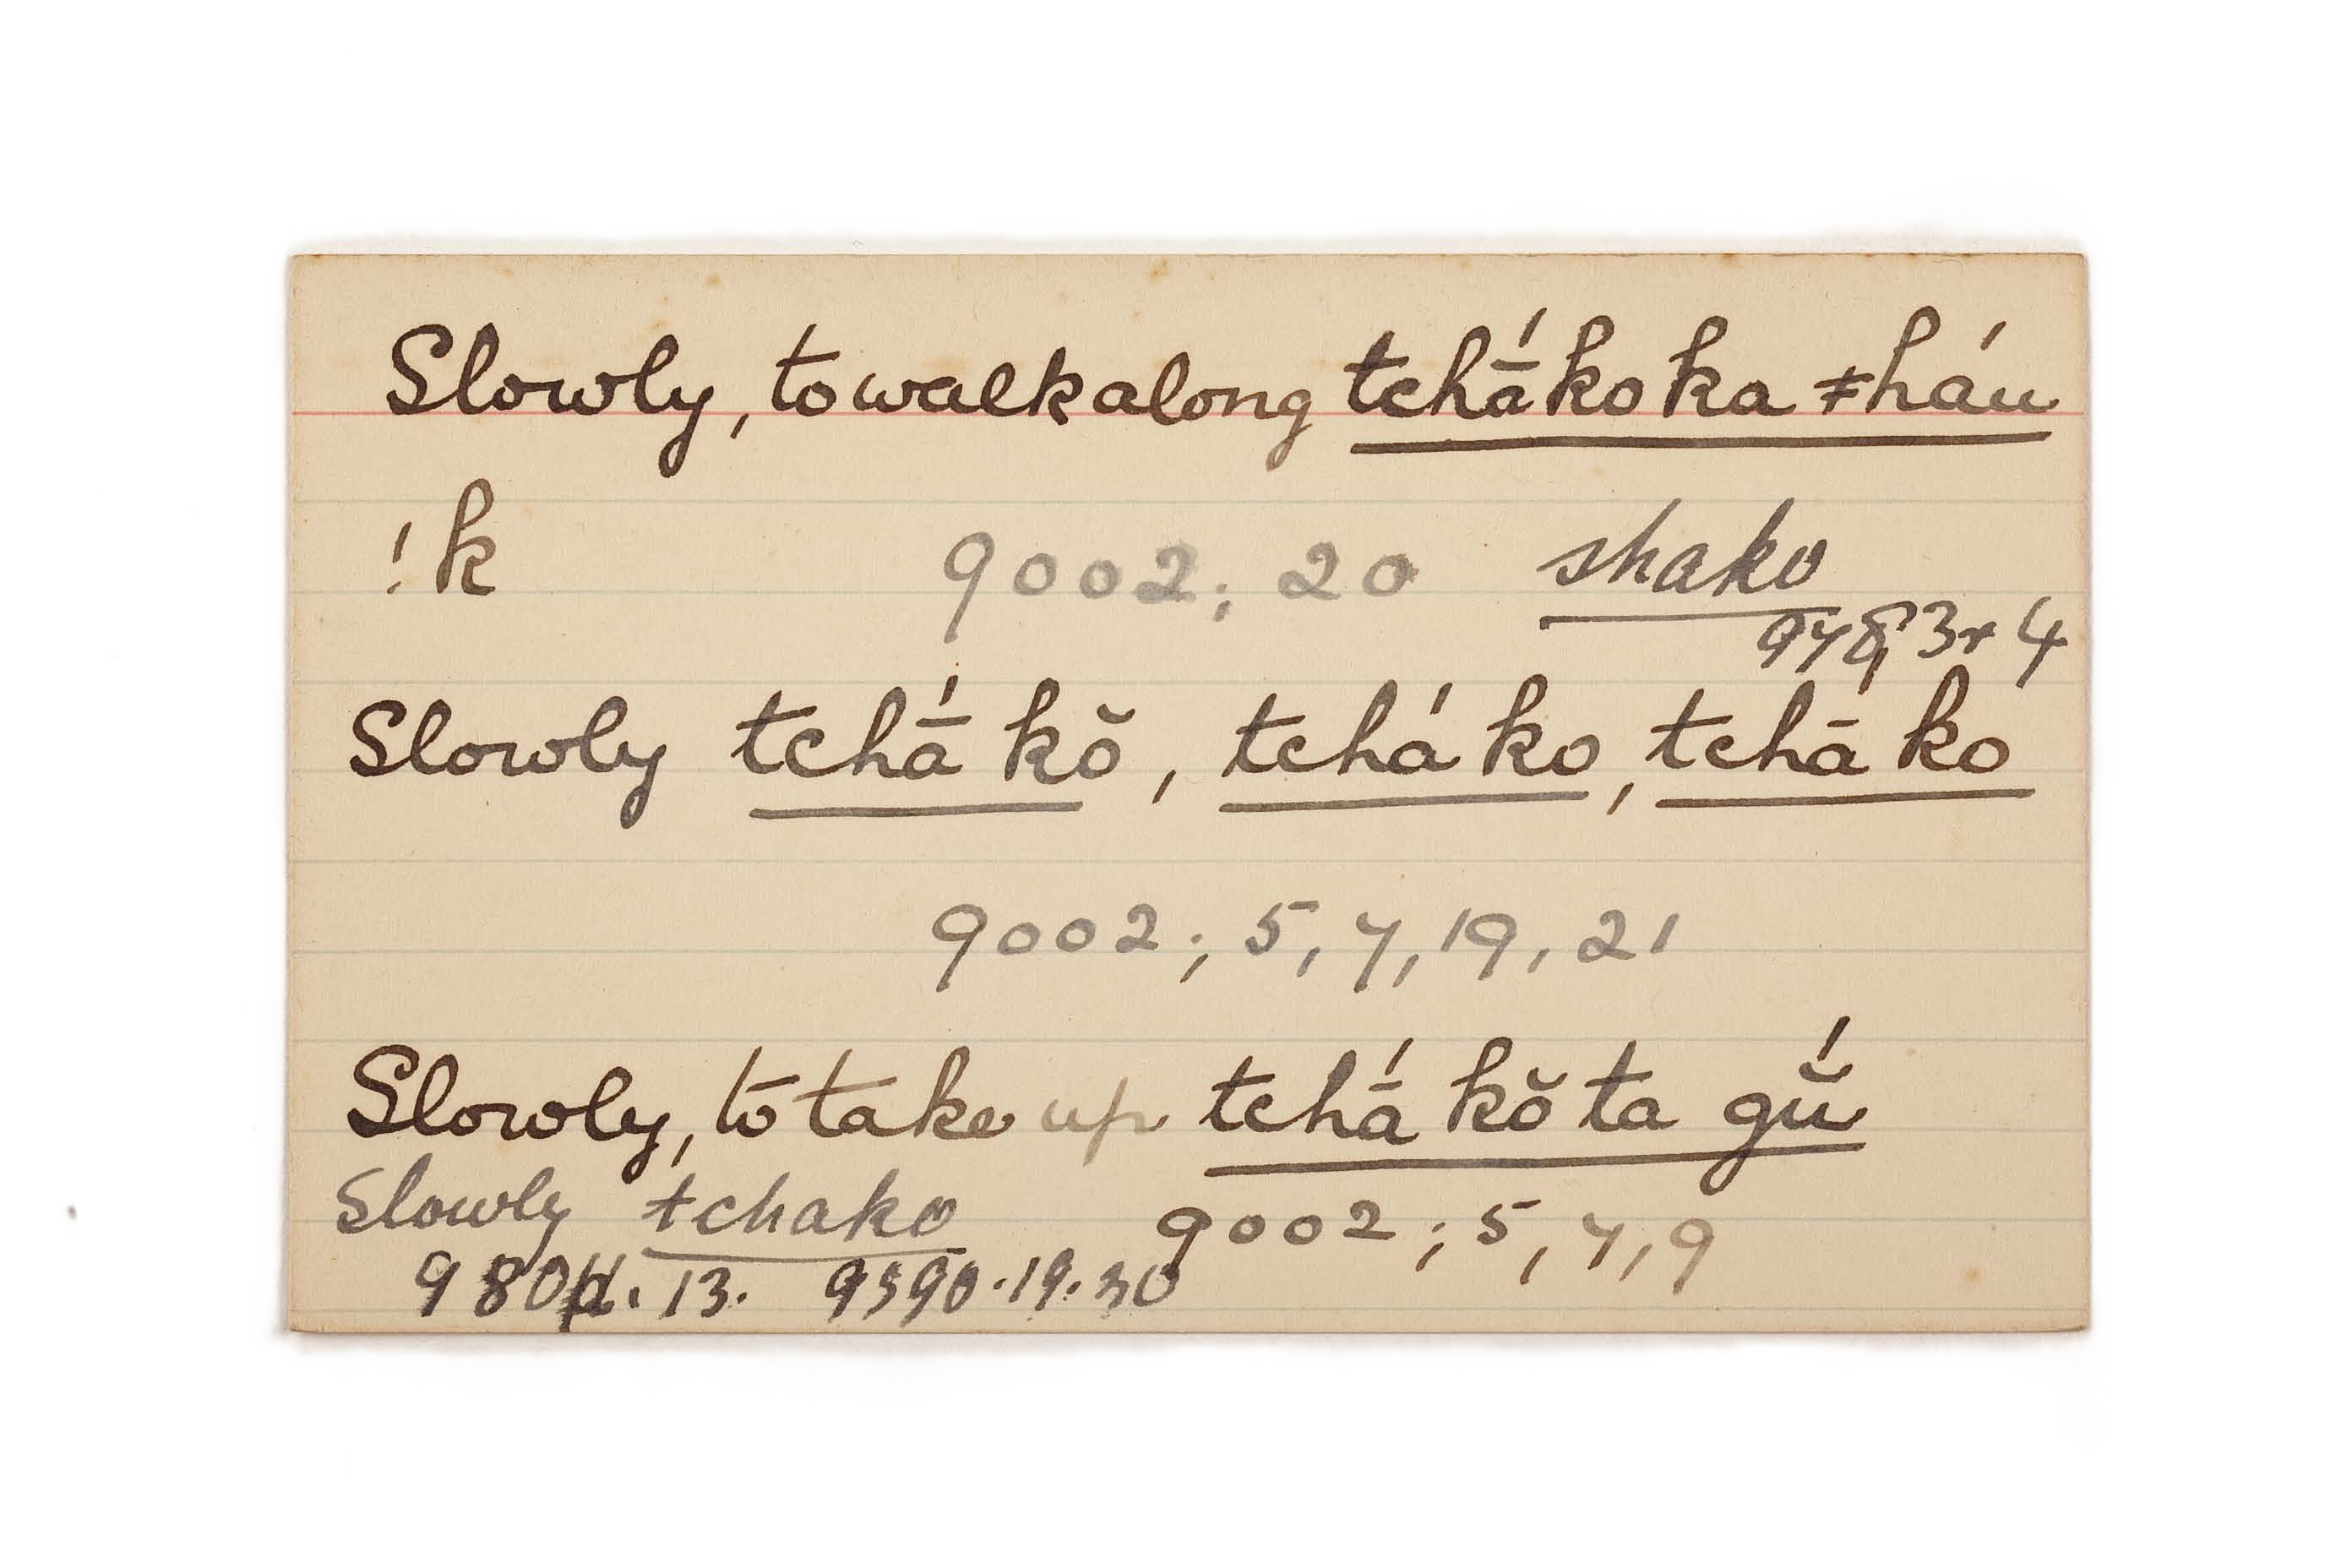 Slowly, to walk along tchā́ko ka ǂhán
!k 9002; 20 shako
978, 3+4
Slowly tchā́ kŏ, tchá ko, tchā́ ko
9002; 5, 7, 19, 21
Slowly, to take up tchā́ kŏ ta gŭ́
Slowly tchako 9002; 5, 7, 9
13. 9590.19.30